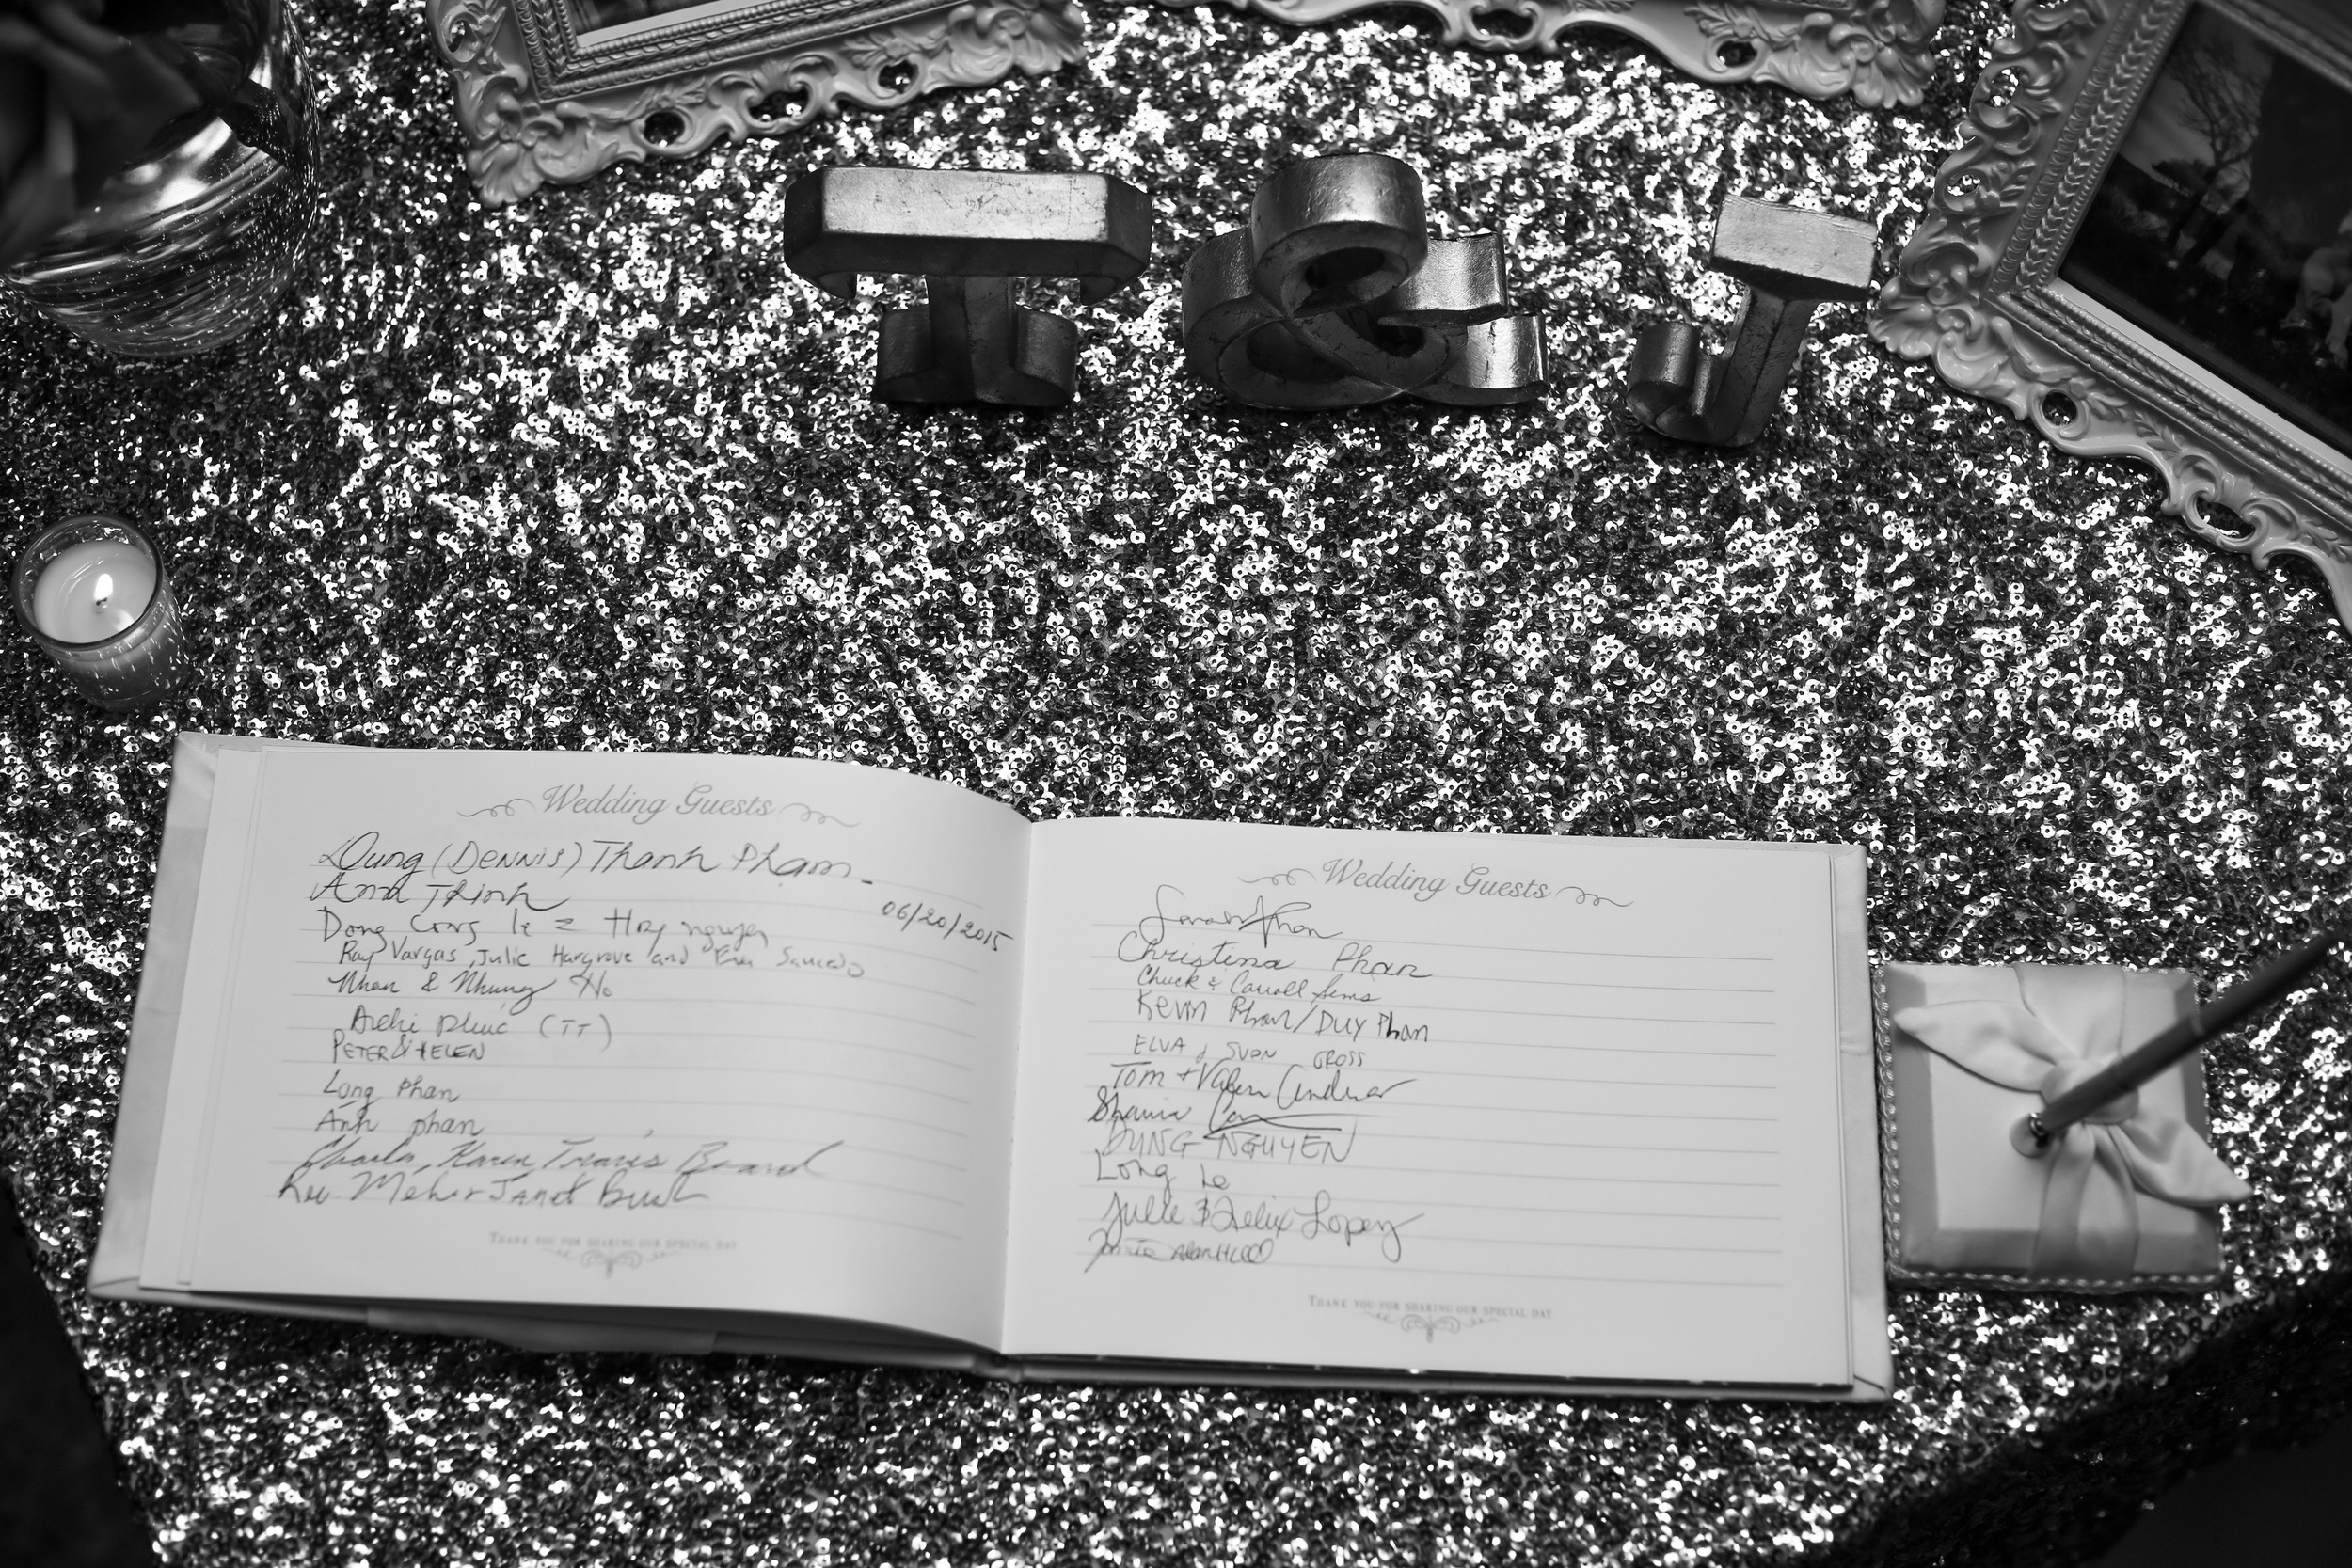 T & J
Wedding Guests
Dung (DENNIS) Thanh Pham
Anna Trinh
06/20/2015
Dong Cong le = Hoy nguyen
Ray Vargas, Julie Hargrove and Eva Saucedo
Nhan & Nhung Ho
(TT)
PETER & HELEN
Long Phan
Anh phan
Charles, Karen, Travis Board
Rev. Mehr Janet Bush
THANK YOU FOR SHARING OUR SPECIAL DAY
Wedding Guests
Sarah Phan
Christina Phan
Chuck & Carroll Sims
Kevin Phan/DUY Phan
ELVA & SVEN GROSS
Tom + Valeri
Shania
DUNG NGUYEN
Long Le
Julie & Felix Lopez
THANK YOU FOR SHARING OUR SPECIAL DAY